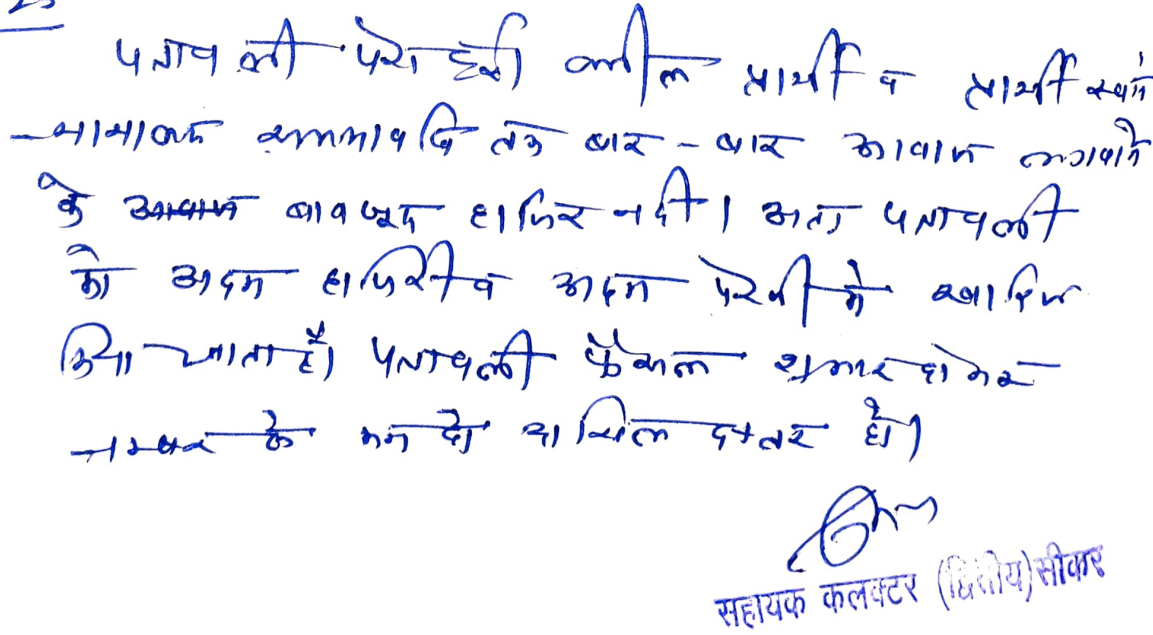 पत्रावली पेश हुई। वकील प्रार्थी व प्रार्थी स्वयं
न्यायालय समयावधि तक बार - बार आवाज लगवाने
के आवाज बावजूद हाजिर नहीं। अतः पत्रावली
को अदम हाजिरी व अदम पैरवी मे खारिज
किया जाता है। पत्रावली फैसल शुमार होकर
नम्बर से कम हो दाखिल दफ्तर हो।
सहायक कलक्टर (द्वितीय) सीकर